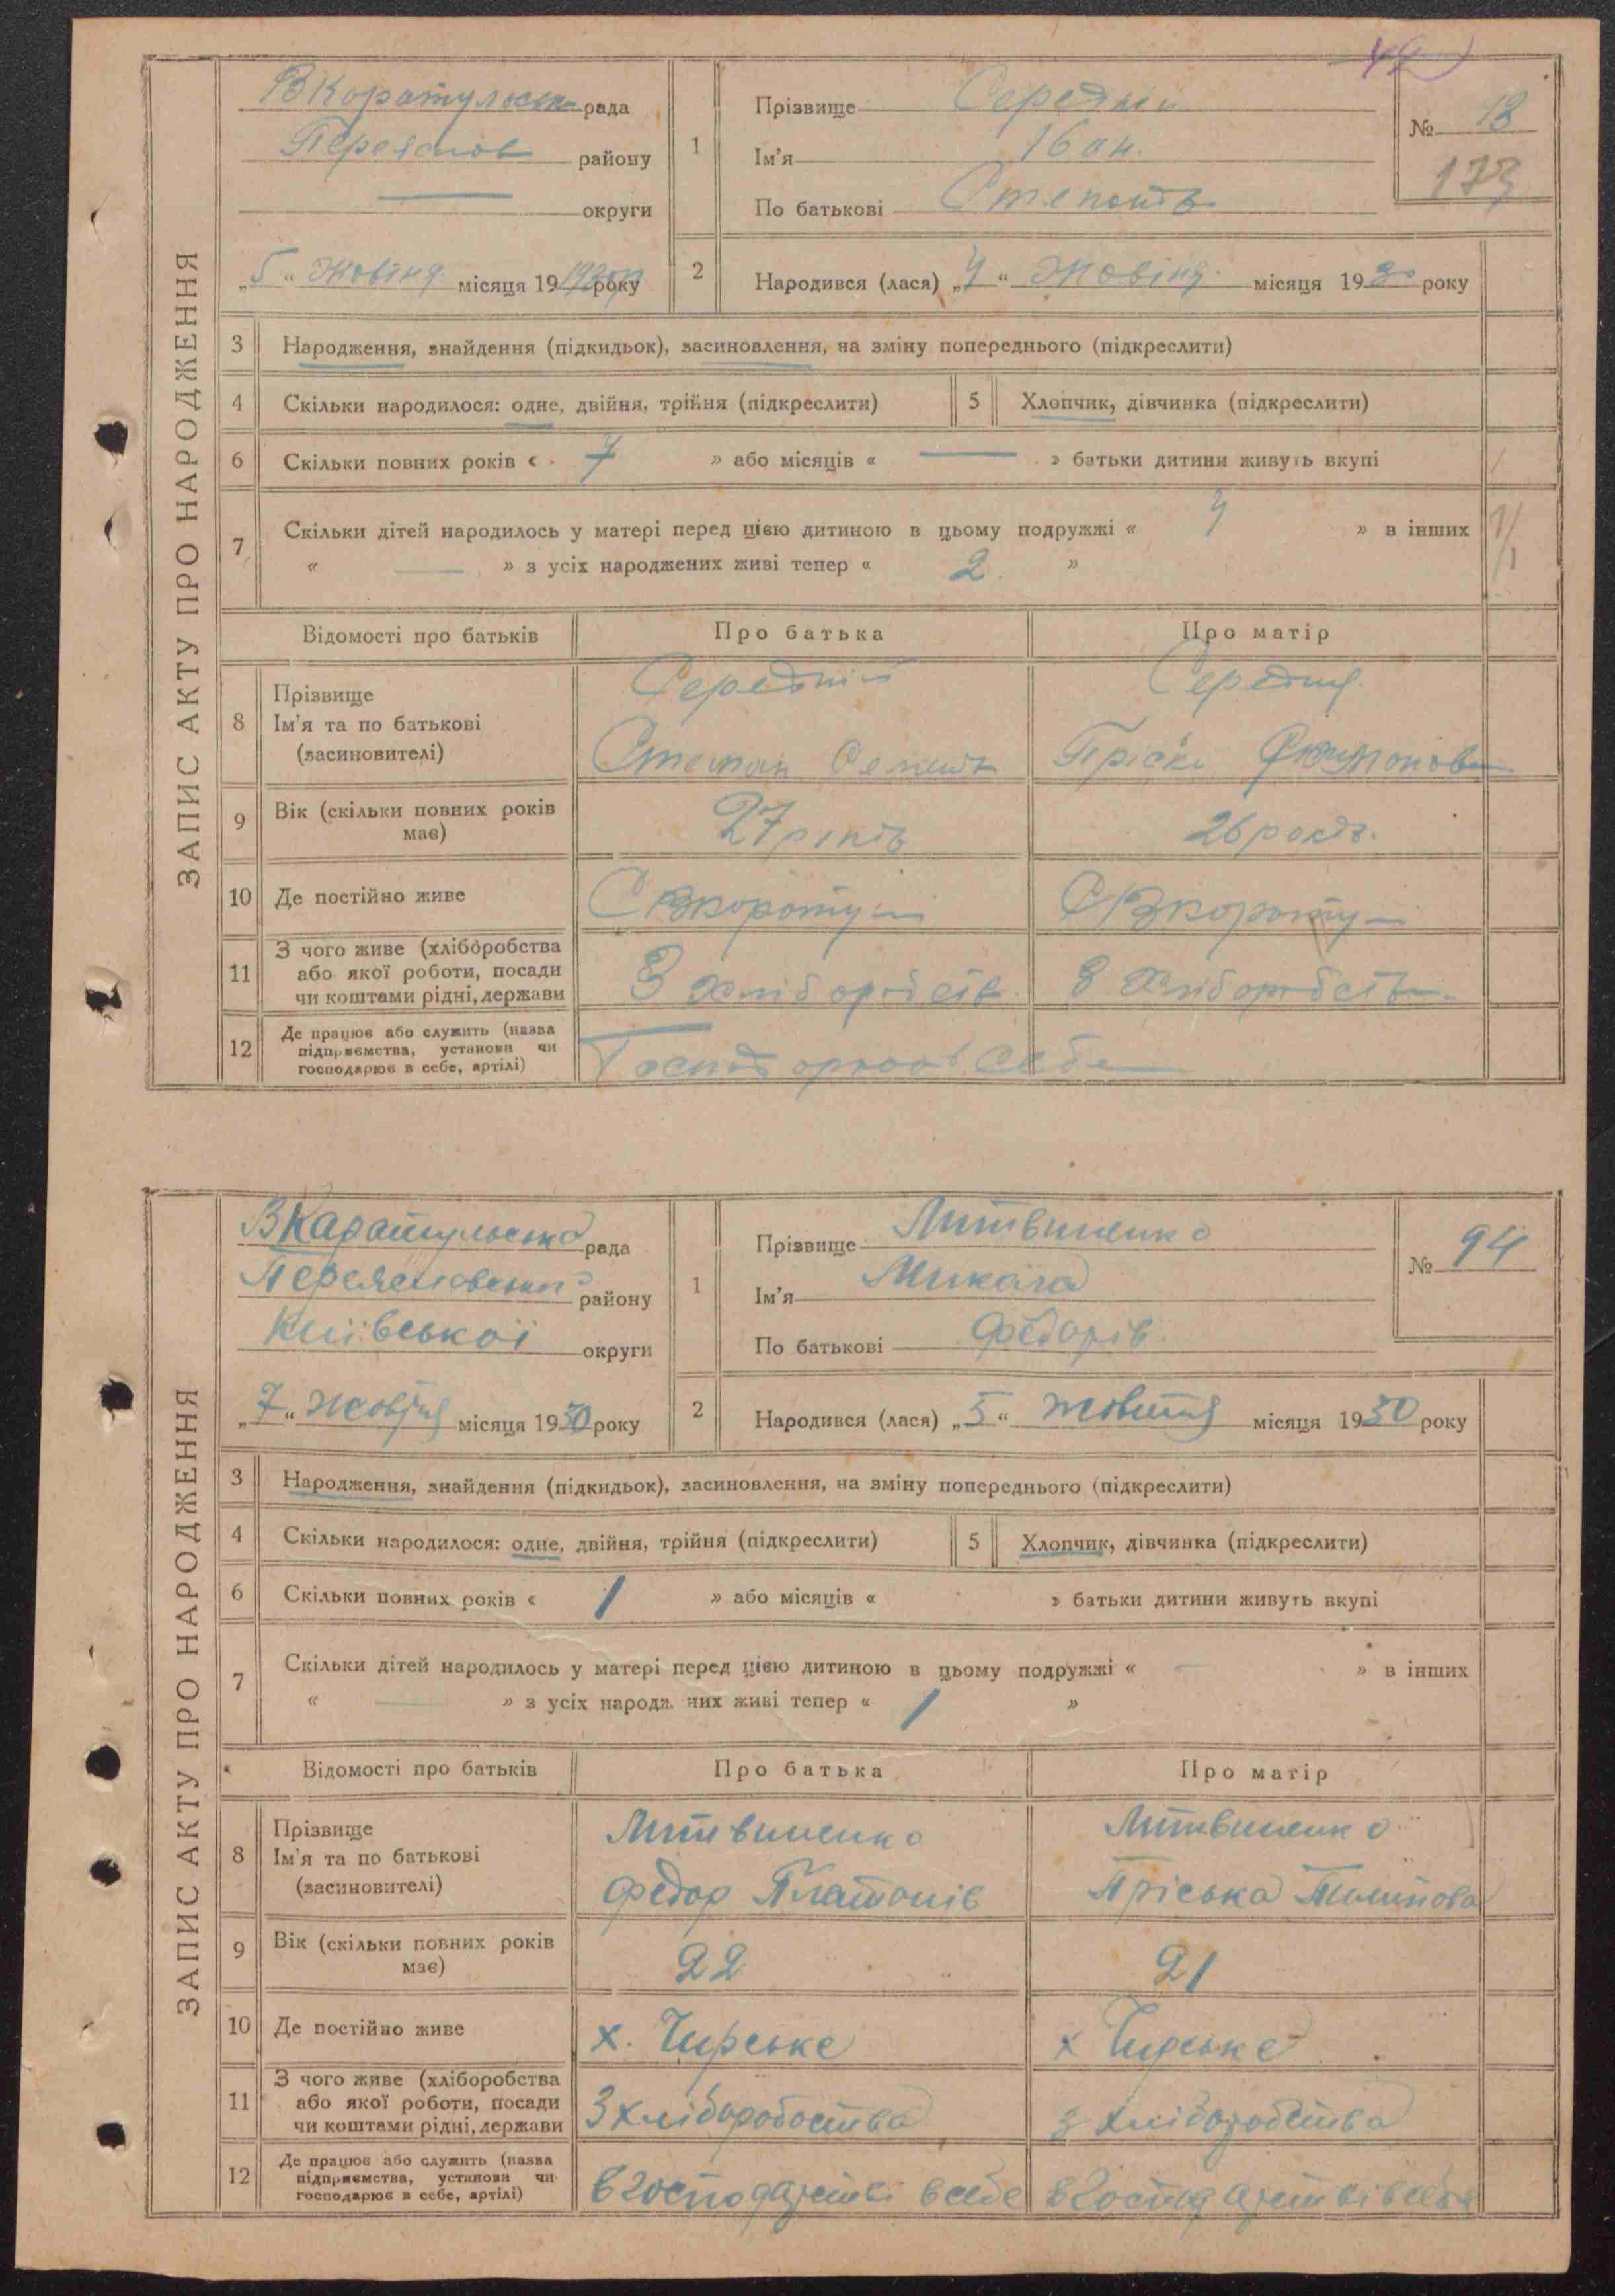 ЗАПИС АКТУ ПРО НАРОДЖЕННЯ
рада
району
округи
„5“ місяця 19 року
1
Прізвище Середній
Ім'я Іван
По батькові
№ 13
173
2
Народився (лася) „4“ місяця 1930 року
3 Народження, знайдення (підкидьок), засиновлення, на зміну попереднього (підкреслити)
4 Скільки народилося: одне, двійня, трійня (підкреслити)
5 Хлопчик, дівчинка (підкреслити)
6 Скільки повних років « 7 » або місяців « — » батьки дитини живуть вкупі
7 Скільки дітей народилось у матері перед цією дитиною в цьому подружжі « 4 » в інших
« — » з усіх народжених живі тепер « 2 »
Відомості про батьків
Про батька
Про матір
8 Прізвище
Ім'я та по батькові
(засиновителі)
Середній
Середня
Степан
Пріська
9 Вік (скільки повних років
має)
27 років
26 років.
10 Де постійно живе
11 З чого живе (хліборобства
або якої роботи, посади
чи коштами рідні, держави
З хліборобств.
З хліборобств
12 Де працює або служить (назва
підприємства, установи чи
господарює в себе, артілі)
ЗАПИС АКТУ ПРО НАРОДЖЕННЯ
ВКаратульська рада
Переяславської району
Київської округи
„7“ жовтня місяця 1930 року
1
Прізвище Литвиненко
Ім'я Микола
По батькові Федорів
№ 94
2
Народився (лася) „5“ жовтня місяця 1930 року
3 Народження, знайдення (підкидьок), засиновлення, на зміну попереднього (підкреслити)
4 Скільки народилося: одне, двійня, трійня (підкреслити)
5 Хлопчик, дівчинка (підкреслити)
6 Скільки повних років « 1 » або місяців « » батьки дитини живуть вкупі
7 Скільки дітей народилось у матері перед цією дитиною в цьому подружжі « — » в інших
« — » з усіх народж них живі тепер « 1 »
Відомості про батьків
Про батька
Про матір
8 Прізвище
Ім'я та по батькові
(засиновителі)
Литвиненко
Литвиненко
Федор Платонів
Пріська
9 Вік (скільки повних років
має)
22
21
10 Де постійно живе
х. Чирське
х Чирське
11 З чого живе (хліборобства
або якої роботи, посади
чи коштами рідні, держави
З хлібороботства
з хліборобства
12 Де працює або служить (назва
підприємства, установи чи
господарює в себе, артілі)
в господарстві в себе
в господарстві в себе